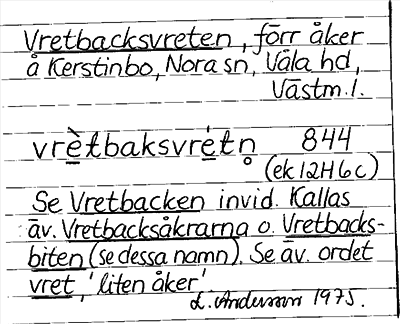 Vretbacksvreten, förr åker
å Kerstinbo, Nora sn, Våla hd,
Västm. l.
vrètbaksvrétn̥ 844
(ek 12H6c)
Se Vretbacken invid. Kallas
äv. Vretbacksåkrarna o. Vretbacks-
biten (se dessa namn). Se äv. ordet
vret, 'liten åker'.
L. Andersson 1975.